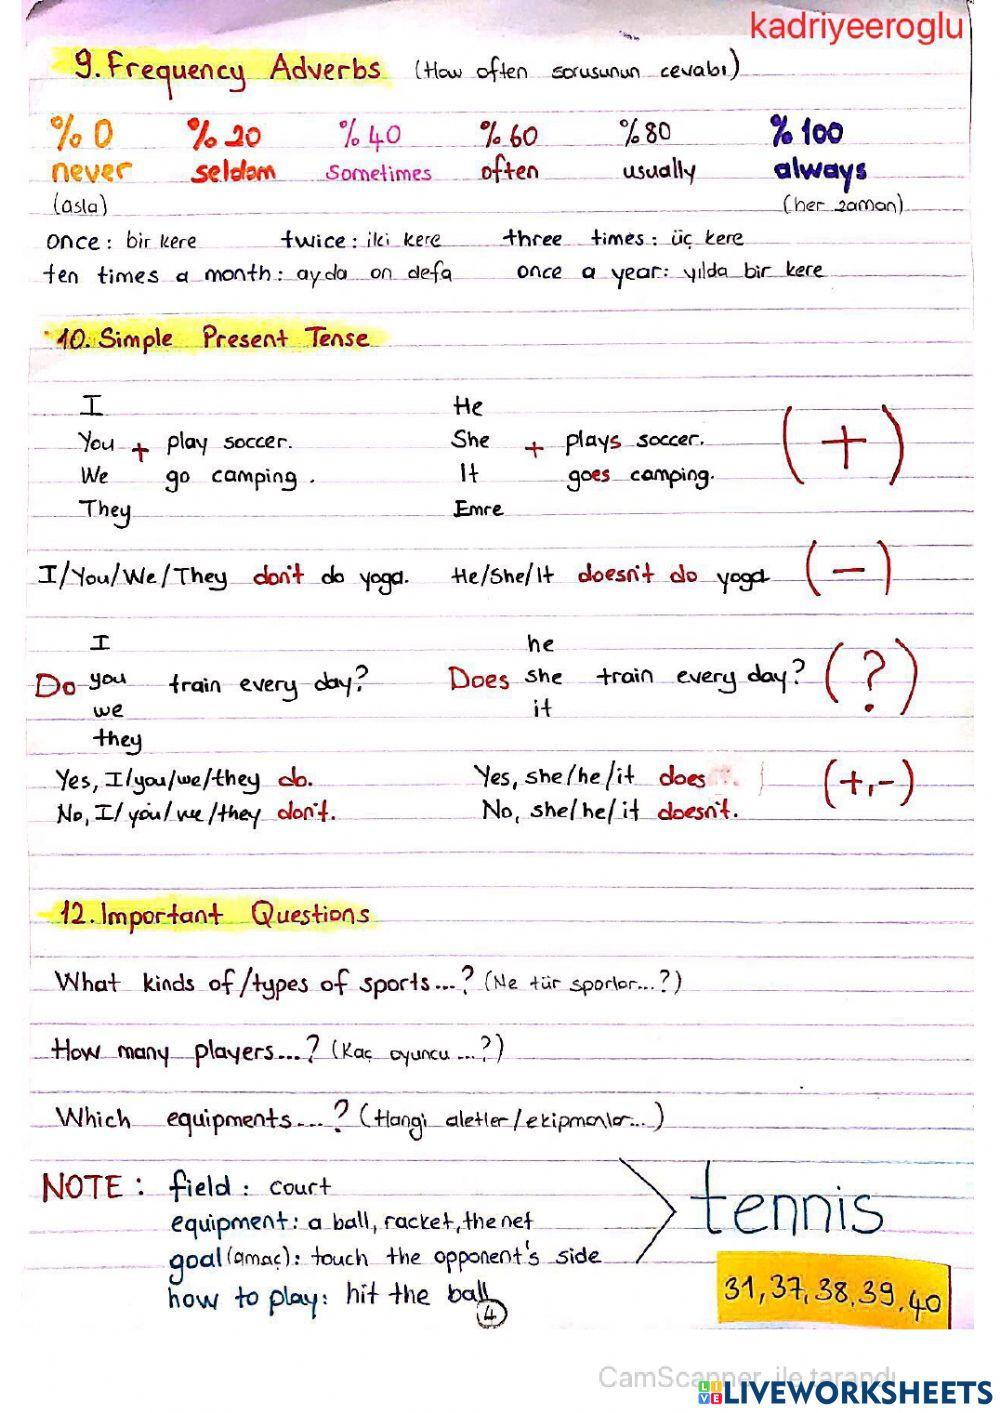 kadriyeeroglu
9. Frequency Adverbs (How often sorusunun cevabı)
%0 %20 %40 %60 %80 %100
never seldom sometimes often usually always
(asla) (her zaman)
once: bir kere twice: iki kere three times: üç kere
ten times a month: ayda on defa once a year: yılda bir kere
10. Simple Present Tense
I He
You + play soccer. She + plays soccer. (+)
We go camping. It goes camping.
They Emre
I/You/We/They don't do yoga. He/She/It doesn't do yoga (-)
I he
Do you train every day? Does she train every day? (?)
we it
they
Yes, I/you/we/they do. Yes, she/he/it does (+,-)
No, I/you/we/they don't. No, she/he/it doesn't.
12. Important Questions
What kinds of/types of sports...? (Ne tür sporlar...?)
How many players...? (Kaç oyuncu...?)
Which equipments....? (Hangi aletler/ekipmanlar...)
NOTE: field: court
equipment: a ball, racket, the net
tennis
goal (amaç): touch the opponent's side
how to play: hit the ball
31, 37, 38, 39, 40
4
CamScanner ile tarandı
LIVEWORKSHEETS